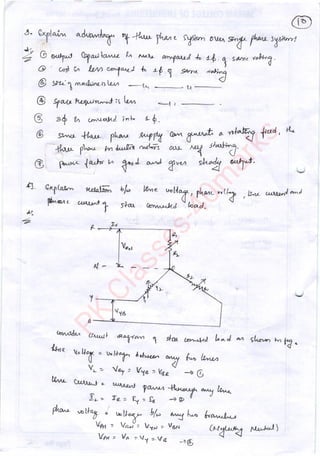 10
3. Explain advantages of three phase system over single phase system?
① output Capacitance is more compared to 1ϕ of same rating.
② cost is less compared to 1ϕ of same rating
③ size of machine is less
④ space Requirement is less
⑤ 3ϕ is converted into 1ϕ.
⑥ Since three phase supply can generate a rotating field, the
three phase motors are self starting.
⑦ power factor is good and gives steady output.
4] Explain relation b/w line voltage, phase voltage, line current and
phase current of star connected load.
R
N
Y
B
VYB
PK Classes
consider circuit diagram of star connected load as shown in fig.
line voltage = voltage between any two lines
VL = VRY = VYB = VBR → ①
line current = current passes through any line
IL = IR = IY = IB → ②
phase voltage = voltage b/w any two branches
(Neglecting Neutral)